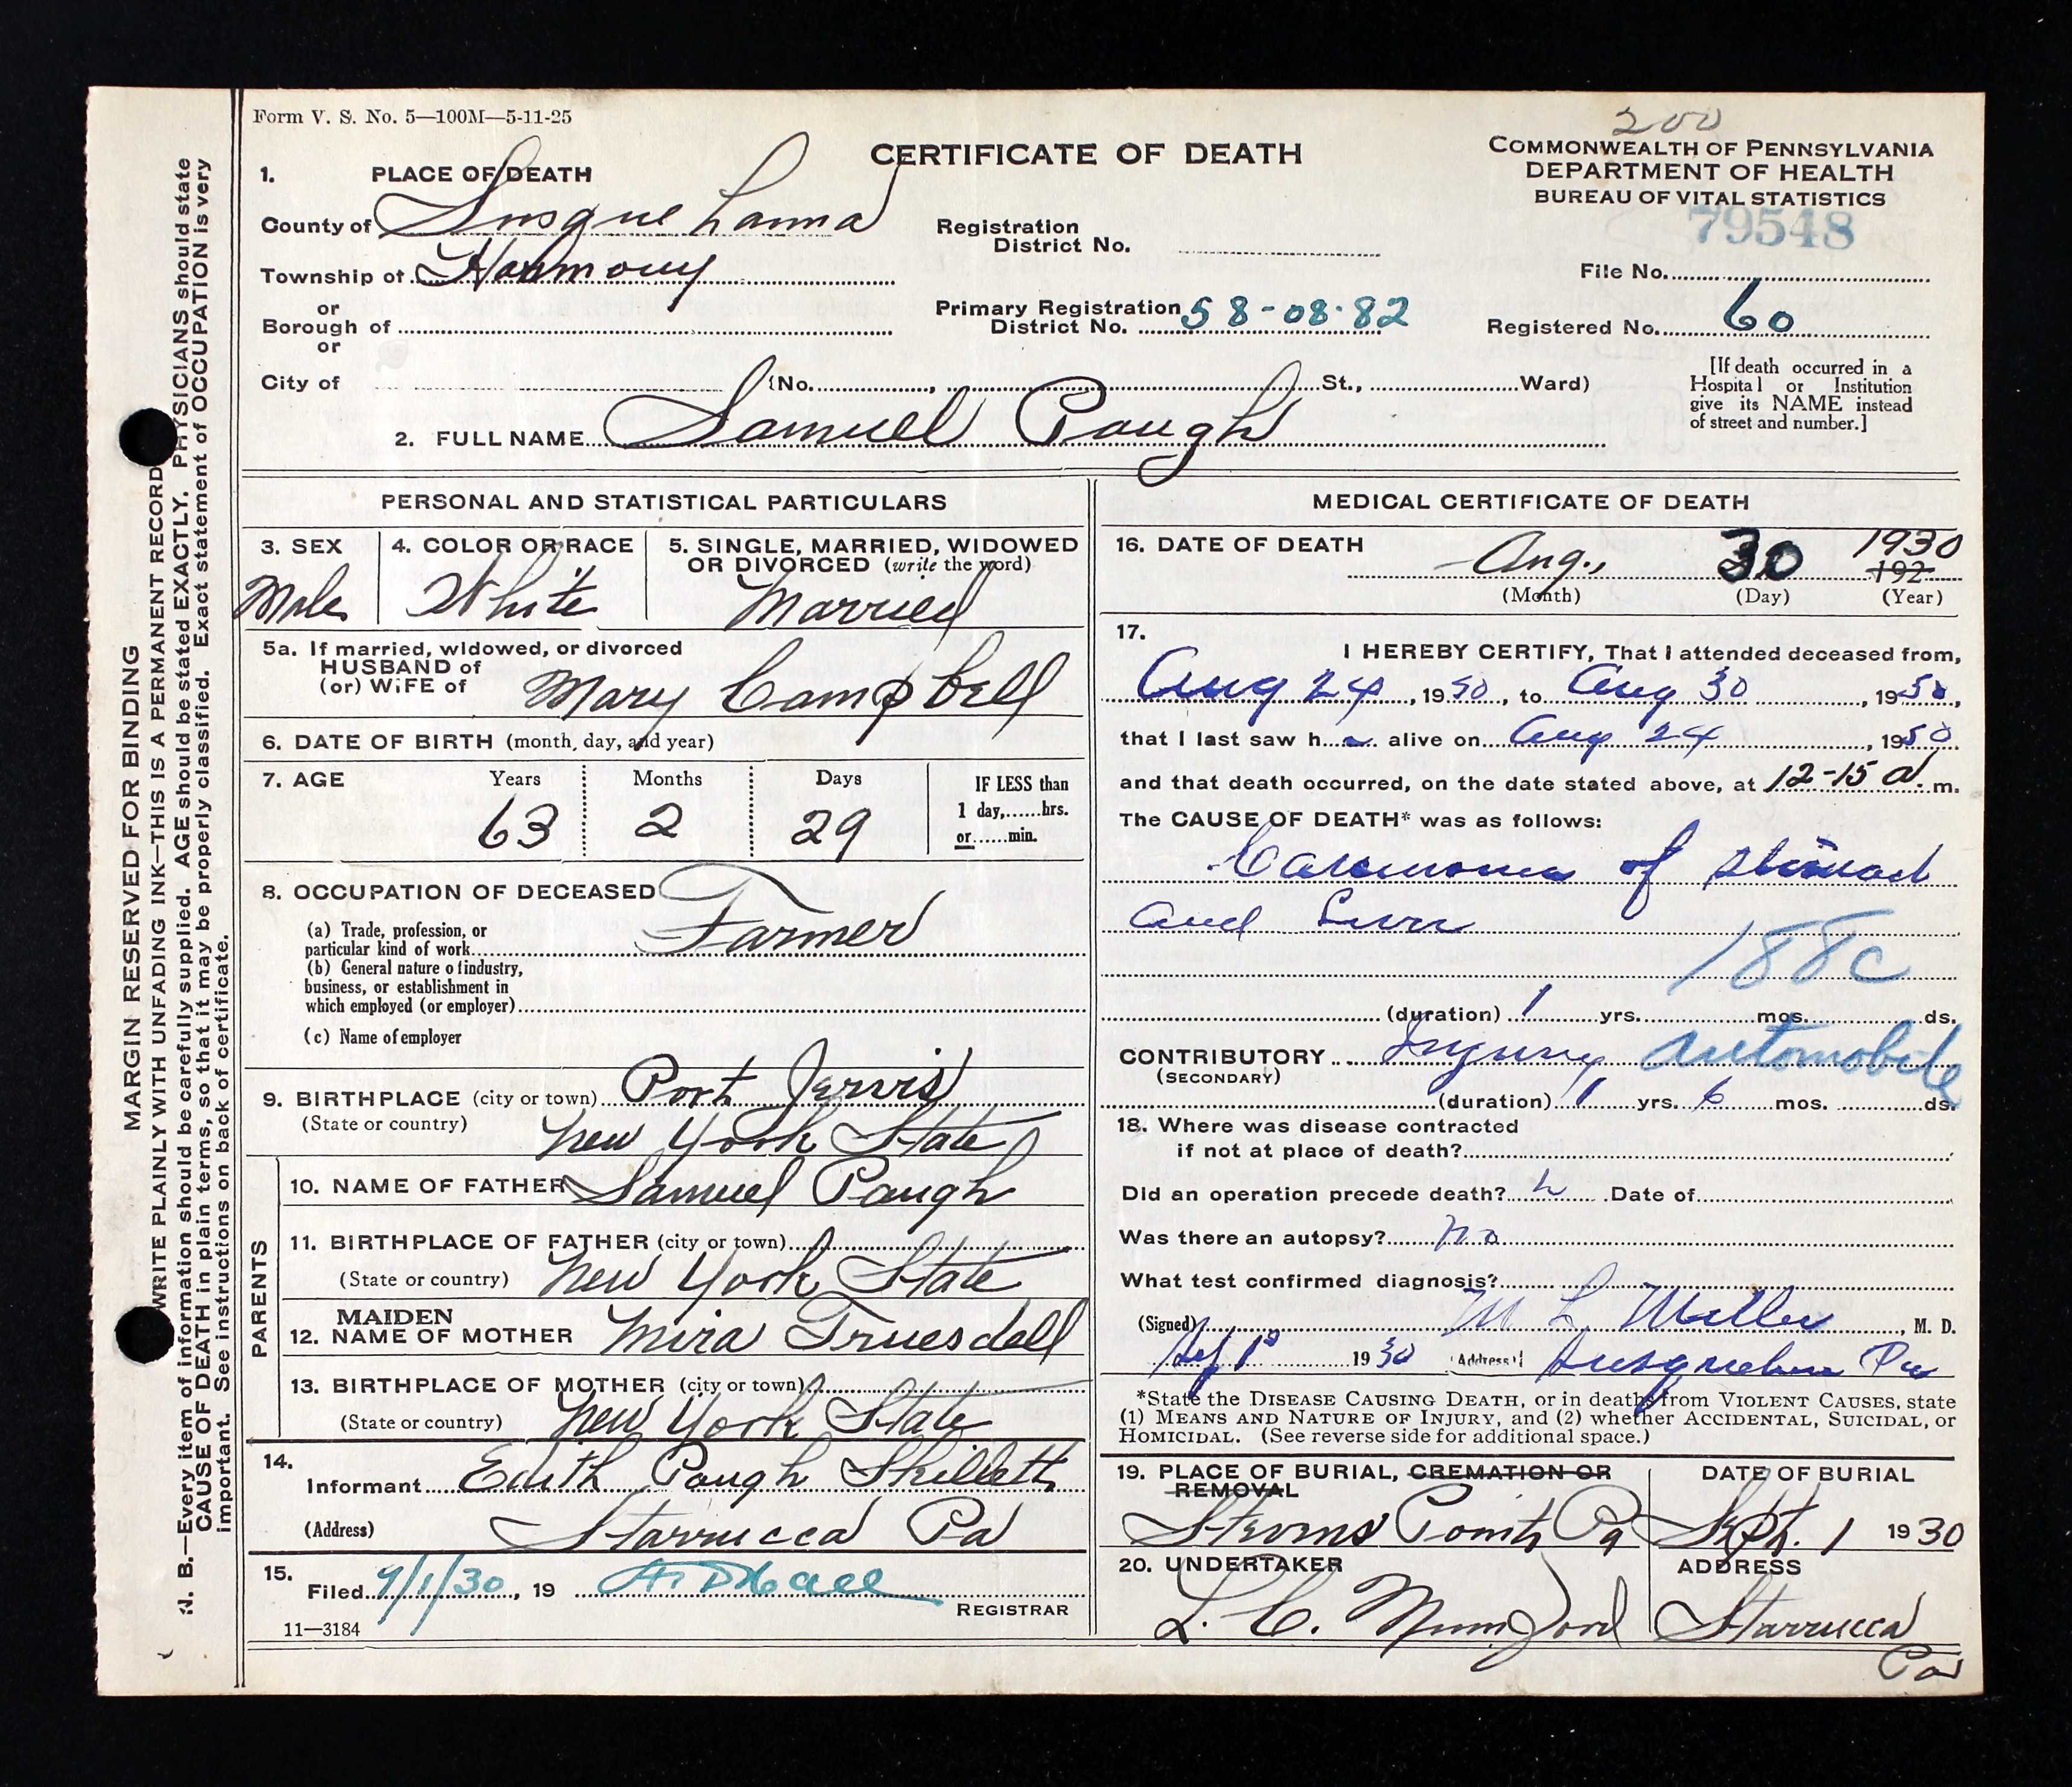 Form V. S. No. 5—100M—5-11-25
200
CERTIFICATE OF DEATH
COMMONWEALTH OF PENNSYLVANIA
DEPARTMENT OF HEALTH
BUREAU OF VITAL STATISTICS
79548
1. PLACE OF DEATH
County of Susquehanna
Registration District No.
Township of Harmony
File No.
or
Borough of
Primary Registration District No. 58-08-82
Registered No. 60
or
City of (No. , St., Ward)
[If death occurred in a Hospital or Institution give its NAME instead of street and number.]
2. FULL NAME Samuel Paugh
PERSONAL AND STATISTICAL PARTICULARS
3. SEX
Male
4. COLOR OR RACE
White
5. SINGLE, MARRIED, WIDOWED OR DIVORCED (write the word)
Married
5a. If married, widowed, or divorced
HUSBAND of
(or) WIFE of Mary Campbell
6. DATE OF BIRTH (month, day, and year)
7. AGE Years Months Days
63 2 29
IF LESS than
1 day,......hrs.
or......min.
8. OCCUPATION OF DECEASED
(a) Trade, profession, or particular kind of work Farmer
(b) General nature of industry, business, or establishment in which employed (or employer)
(c) Name of employer
9. BIRTHPLACE (city or town) Port Jervis
(State or country) New York State
PARENTS
10. NAME OF FATHER Samuel Paugh
11. BIRTHPLACE OF FATHER (city or town)
(State or country) New York State
12. MAIDEN NAME OF MOTHER Mira Truesdell
13. BIRTHPLACE OF MOTHER (city or town)
(State or country) New York State
14.
Informant Edith Paugh Skillett
(Address) Starrucca Pa
15.
Filed 9/1/30, 19
REGISTRAR
11—3184
MEDICAL CERTIFICATE OF DEATH
16. DATE OF DEATH Aug., 30 1930
192
(Month) (Day) (Year)
17.
I HEREBY CERTIFY, That I attended deceased from,
Aug 24, 1930, to Aug 30, 1930,
that I last saw h alive on Aug 24, 1930
and that death occurred, on the date stated above, at 12-15 a. m.
The CAUSE OF DEATH* was as follows:
Carcinoma of Stomach
and Liver
188c
(duration) 1 yrs. mos. ds.
CONTRIBUTORY Injury Automobile
(SECONDARY)
(duration) 1 yrs. 6 mos. ds.
18. Where was disease contracted
if not at place of death?
Did an operation precede death? Date of
Was there an autopsy? no
What test confirmed diagnosis?
(Signed) M L Miller, M. D.
Sep 1st 1930 (Address) Susquehanna Pa
*State the DISEASE CAUSING DEATH, or in deaths from VIOLENT CAUSES, state
(1) MEANS AND NATURE OF INJURY, and (2) whether ACCIDENTAL, SUICIDAL, or
HOMICIDAL. (See reverse side for additional space.)
19. PLACE OF BURIAL, CREMATION OR REMOVAL
Stevens Point, Pa
DATE OF BURIAL
Sept. 1 1930
20. UNDERTAKER
L. C. Mumford
ADDRESS
Starrucca Pa
MARGIN RESERVED FOR BINDING
WRITE PLAINLY WITH UNFADING INK—THIS IS A PERMANENT RECORD
N. B.—Every item of information should be carefully supplied. AGE should be stated EXACTLY. PHYSICIANS should state
CAUSE OF DEATH in plain terms, so that it may be properly classified. Exact statement of OCCUPATION is very
important. See instructions on back of certificate.